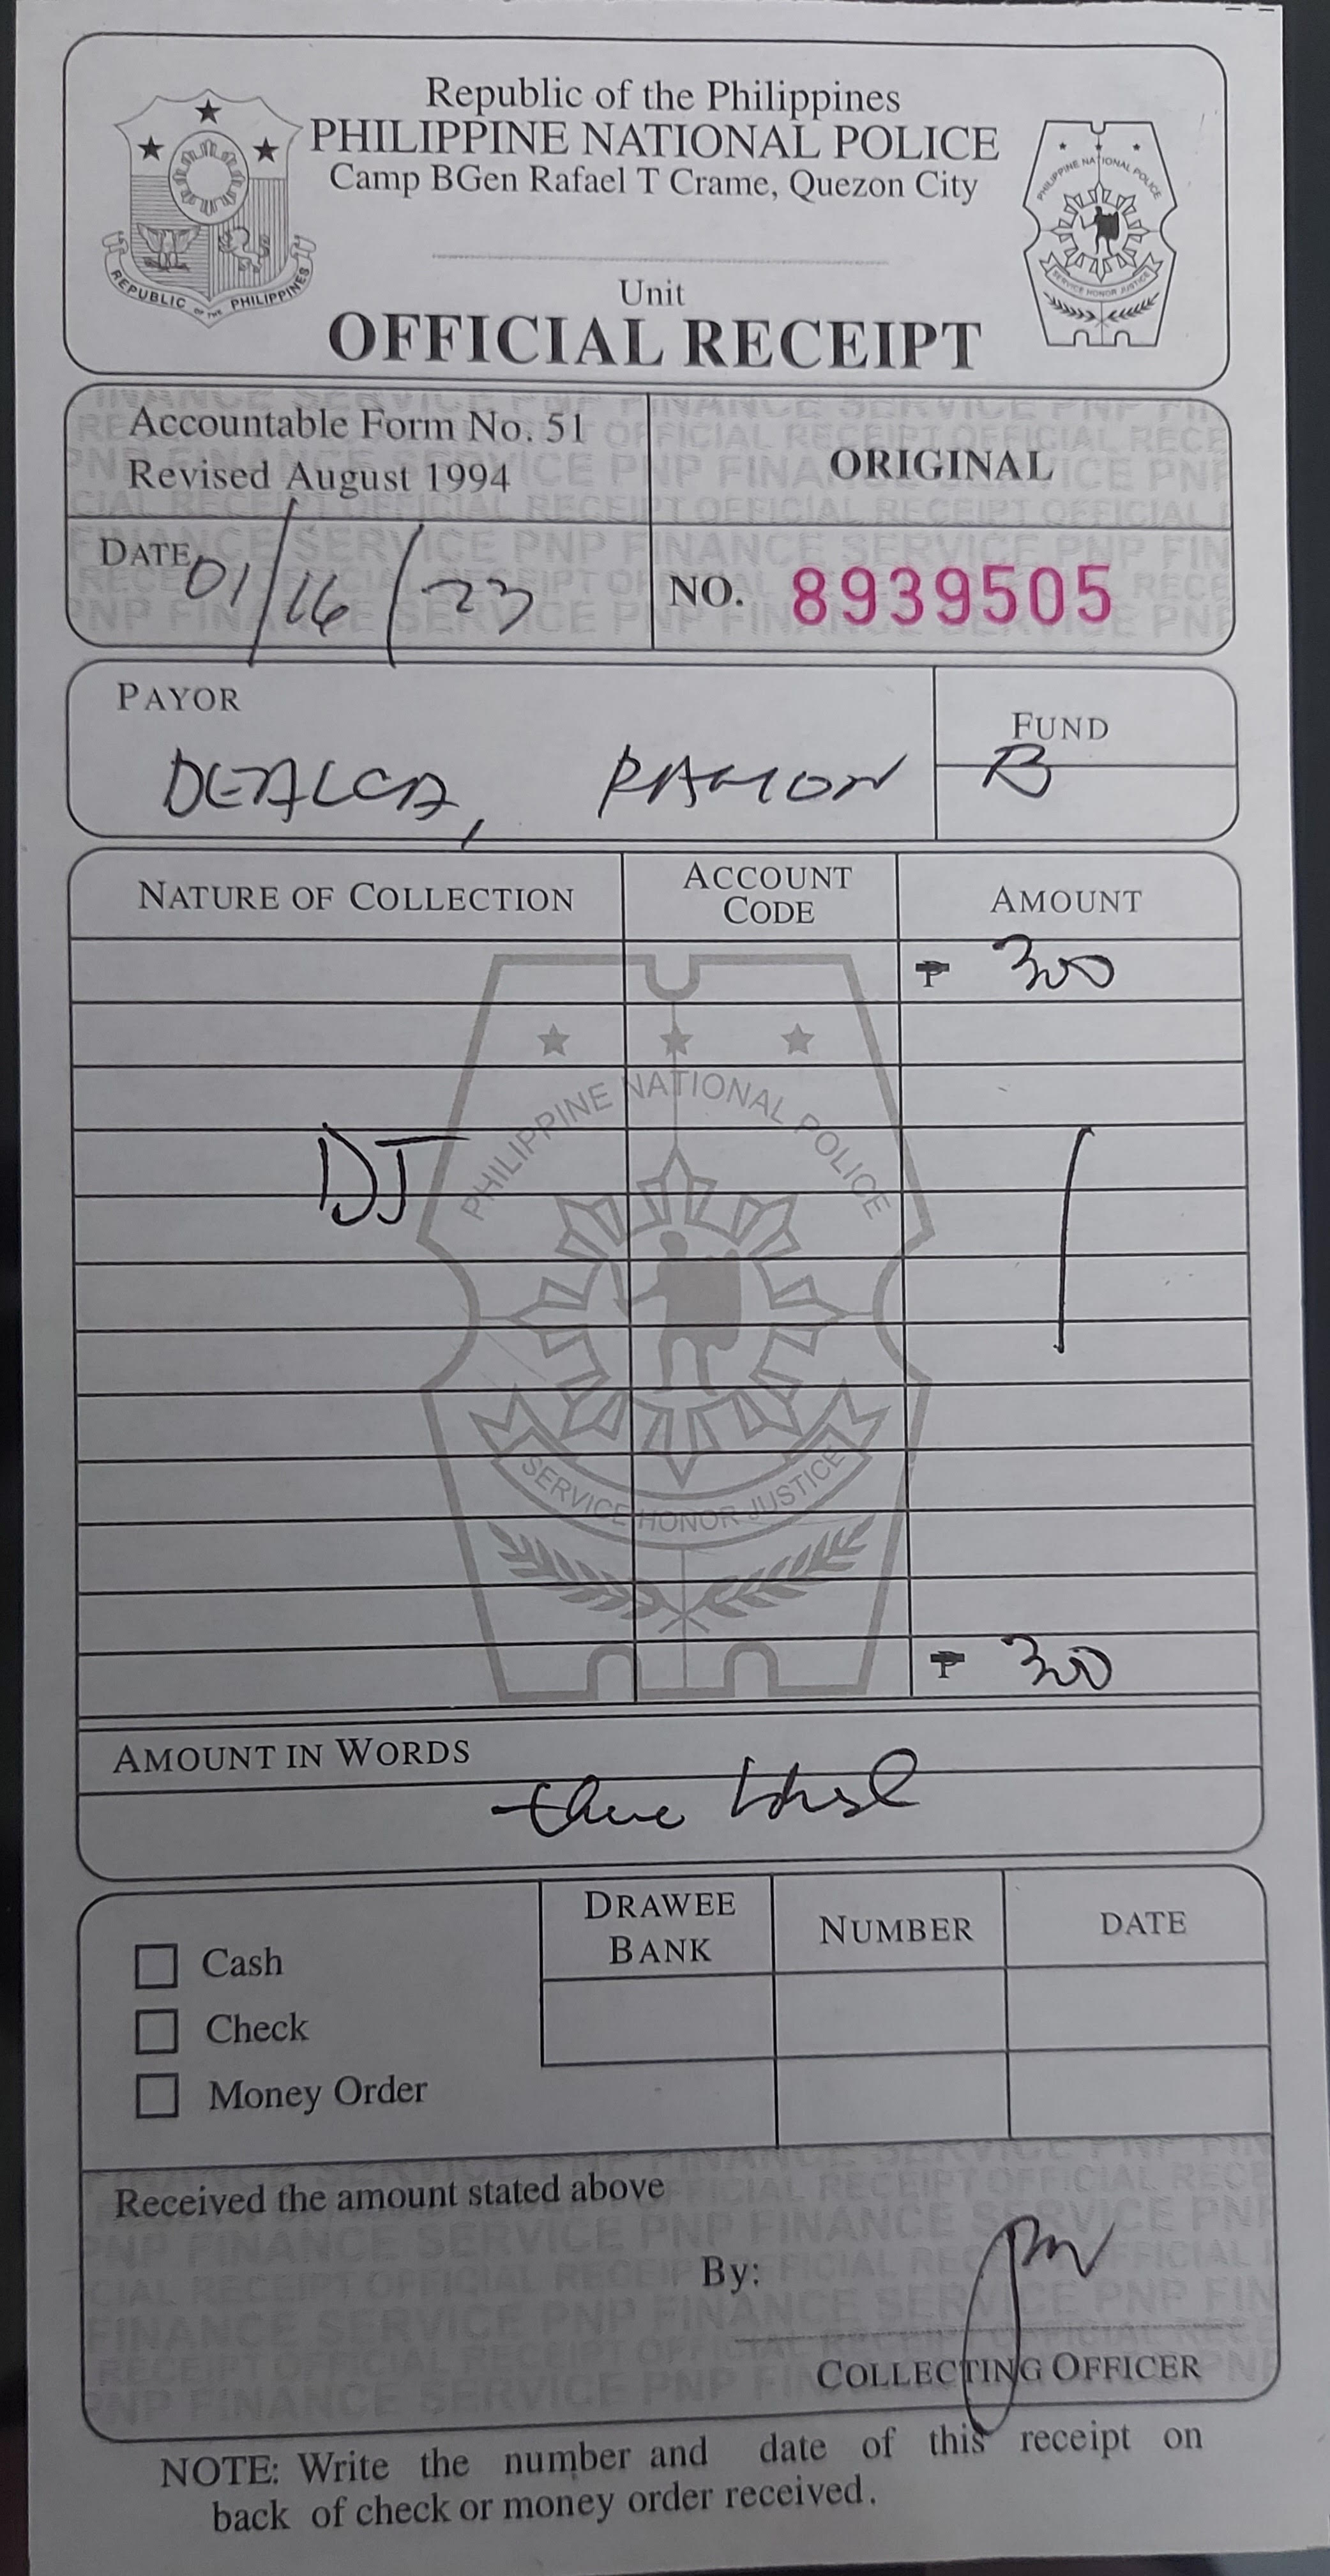 Republic of the Philippines
PHILIPPINE NATIONAL POLICE
Camp BGen Rafael T Crame, Quezon City
REPUBLIC OF THE PHILIPPINES
PHILIPPINE NATIONAL POLICE
SERVICE HONOR JUSTICE
Unit
OFFICIAL RECEIPT
Accountable Form No. 51
Revised August 1994
ORIGINAL
DATE 01/16/23
NO. 8939505
PAYOR
FUND
RAMON B
NATURE OF COLLECTION
ACCOUNT CODE
AMOUNT
₱ 300
PHILIPPINE NATIONAL POLICE
DJ
SERVICE HONOR JUSTICE
₱ 300
AMOUNT IN WORDS
three
DRAWEE BANK
NUMBER
DATE
Cash
Check
Money Order
Received the amount stated above
By:
COLLECTING OFFICER
NOTE: Write the number and date of this receipt on
back of check or money order received.